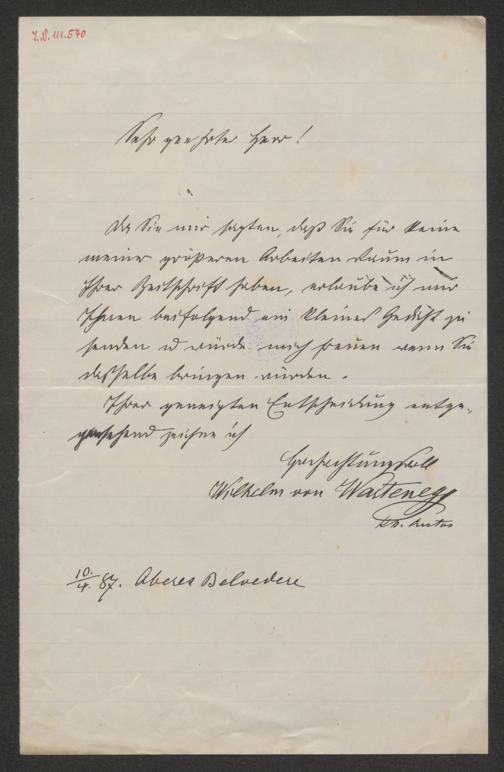 I.N. 111.570
Sehr geehrter Herr!
Da Sie mir sagten, daß Sie für keine
meiner größeren Arbeiten Raum in
Ihrer Zeitschrift haben, erlaube ich mir
Ihnen beifolgend ein kleines Gedicht zu
senden u würde mich freuen wenn Sie
dasselbe bringen würden.
Ihrer geneigten Entscheidung entge-
gensehend zeichne ich
Hochachtungsvoll
Wilhelm von Wartenegg
10./4. 87. Oberes Belvedere